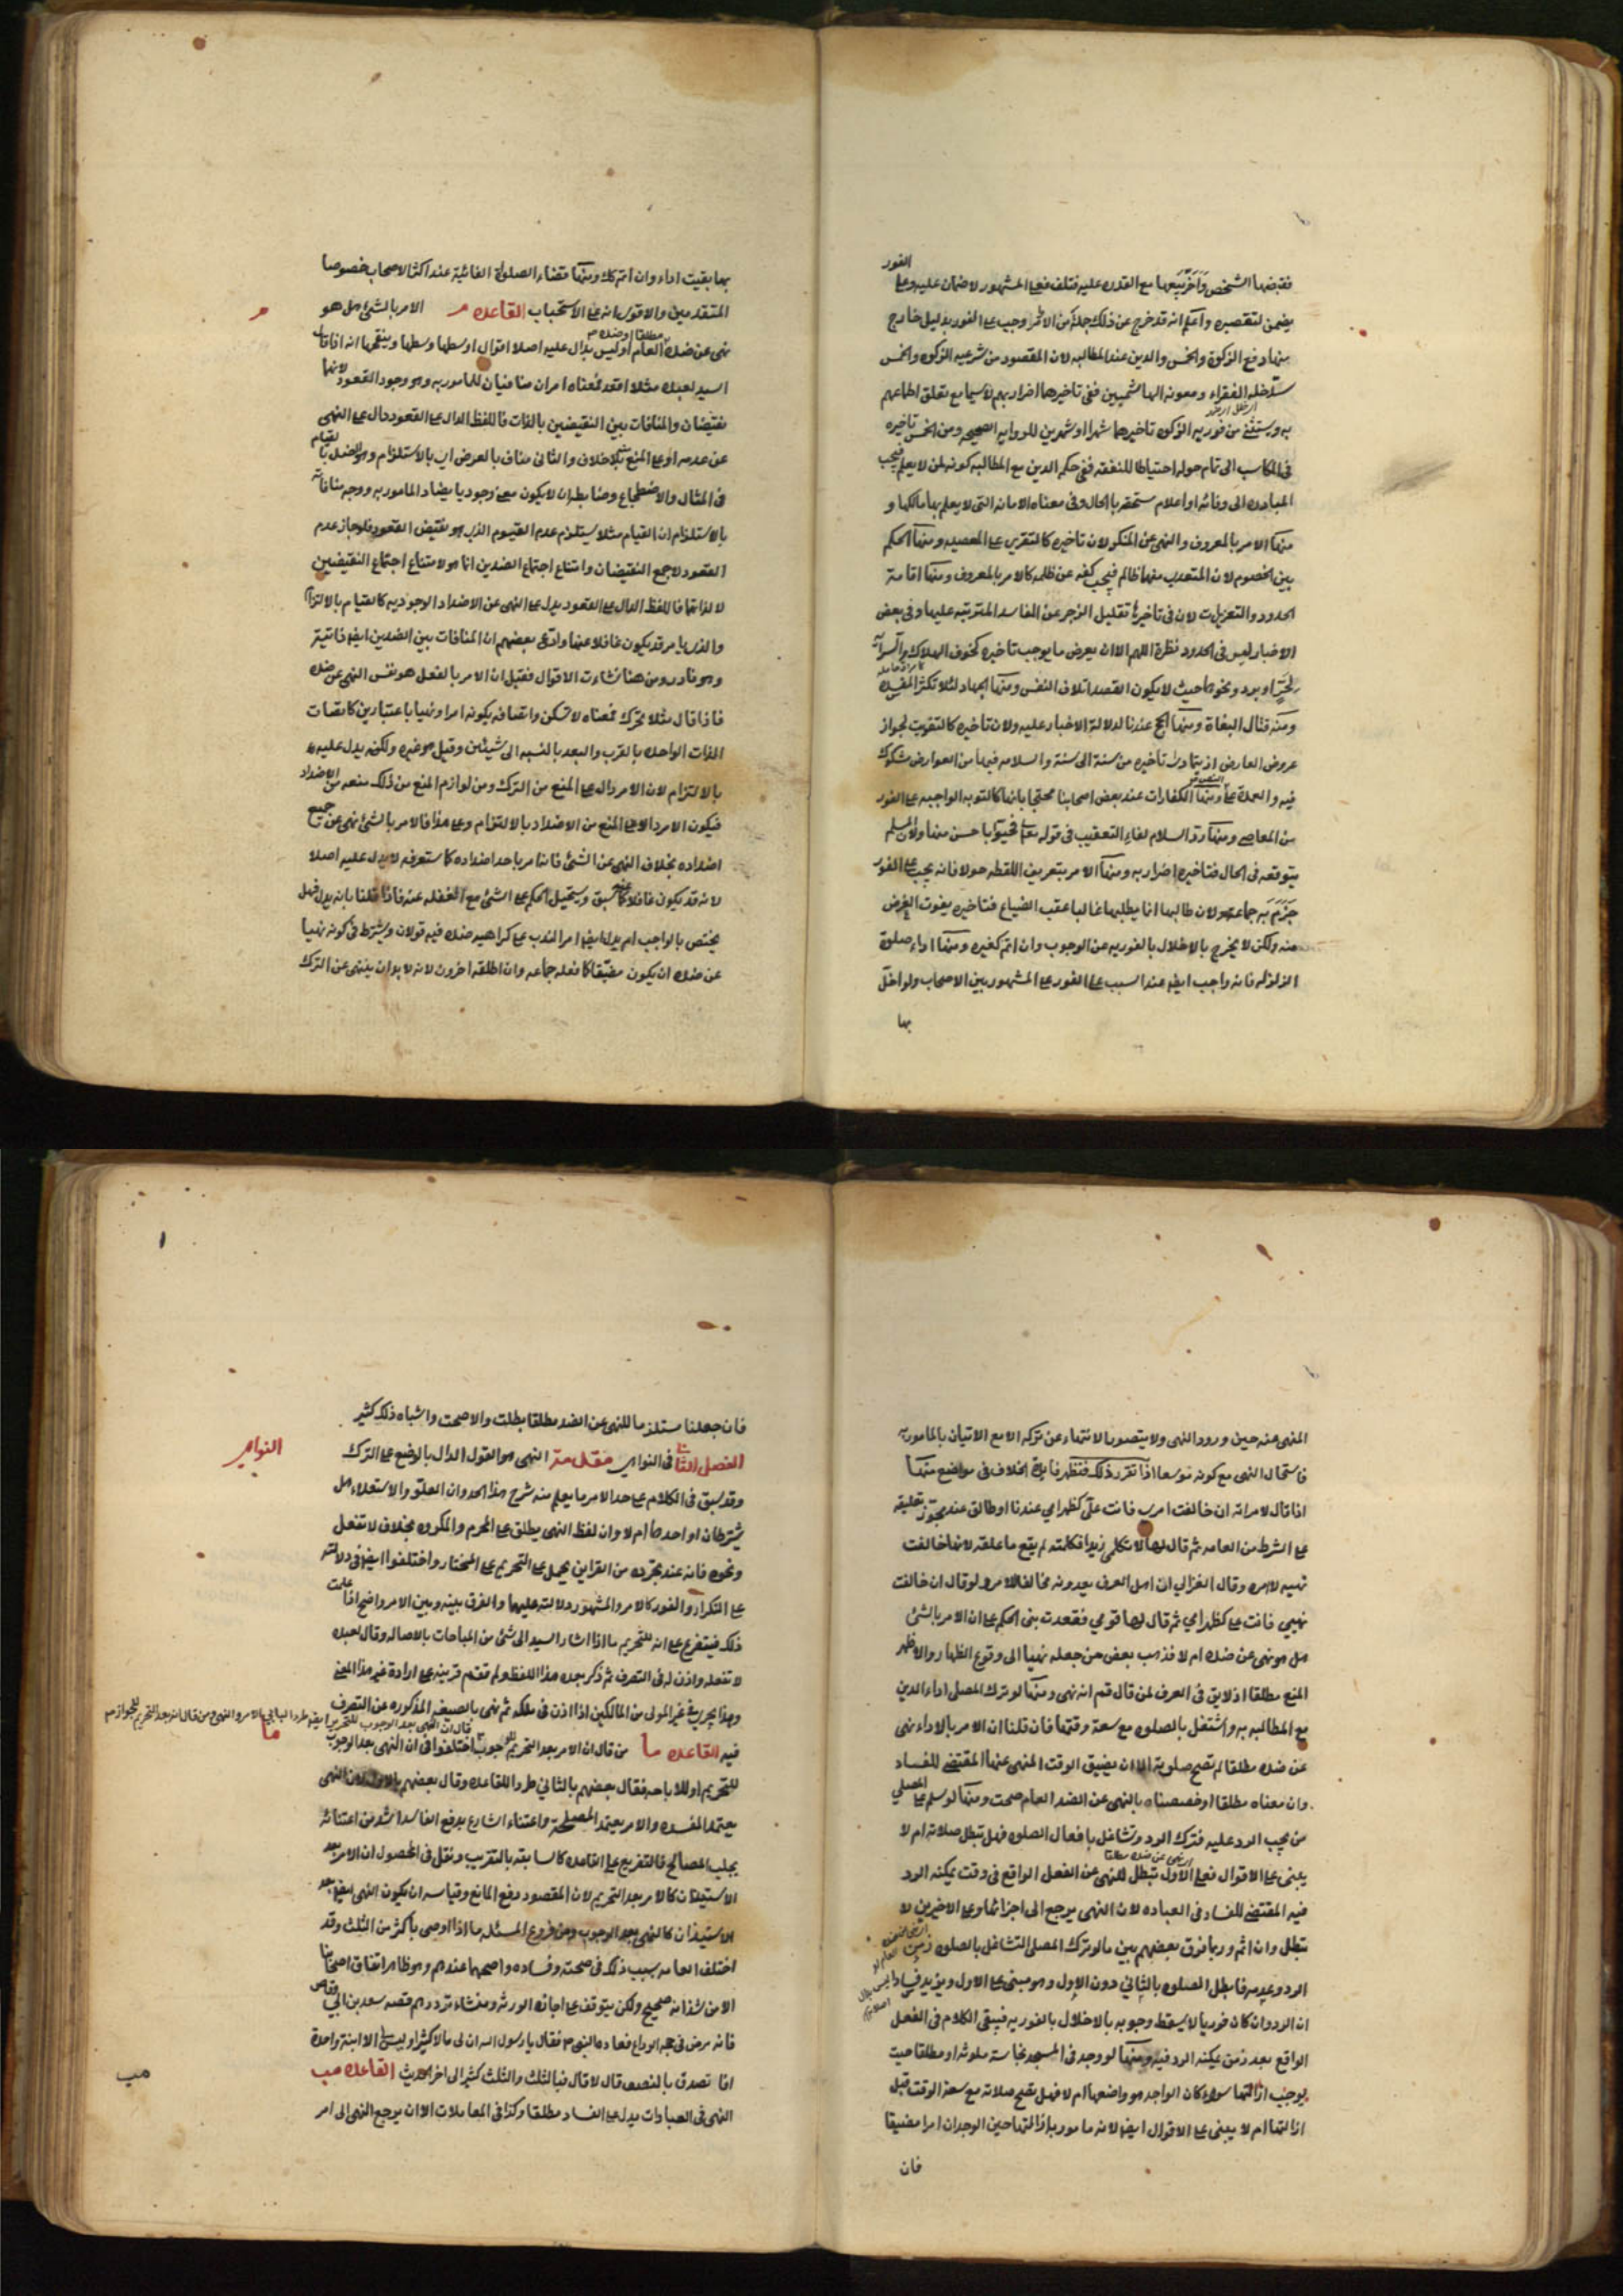 الفور
فقبضها الشخص وأخر بيعها مع القدره عليه فتلف فعلى المشهور لا ضمان عليه وعلى
يضمن لتقصيره واعلم انه قد خرج عن ذلك جملة من الأمر وجب على الفور بدليل خارج
منها دفع الزكوة والخمس والدين عند المطالبه لان المقصود من شرعيه الزكوه والخمس
سد خله الفقراء ومعونه الهاشميين ففى تاخيرهما اضرار بهم لا سيما مع تعلق اطماعهم
به ويستثنى من فوريه الزكوه تاخيرها شهرا او شهرين للروايه الصحيحه ومن الخمس تاخيره
فى المكاسب الى تمام حوله احتياطا للنفقه ففى حكم الدين مع المطالبه كونه لمن لا يعلم فيجب
المبادره الى وفائه او اعلام مستحقه بالحال وفى معناه الامانه التى لا يعلم بها مالكها و
منها الامر بالمعروف والنهى عن المنكر لان تاخيره كالتقرير على المعصيه ومنها الحكم
بين الخصوم لان المتعدى منهما ظالم فيجب كفه عن ظلمه كالامر بالمعروف ومنها اقامة
الحدود والتعزيرات لان فى تاخيرها تقليل الزجر عن المفاسد المترتبه عليها وفى بعض
الاخبار ليس فى الحدود نظرة اللهم الا ان يعرض ما يوجب تاخيره كخوف الهلاك
لحر او برد ونحوها حيث لا يكون القصد اتلاف النفس ومنها الجهاد لئلا تكثر المفسده
ومنه قتال البغاة ومنها الحج عندنا لدلالة الاخبار عليه ولان تاخيره كالتفويت لجواز
عروض العارض اذ يتمادى تأخيره من سنة الى سنة والسلامه فيها من العوارض مشكوك
فيه ومنها الكفارات عند بعض اصحابنا محتجا بانها كالتوبه الواجبه على الفور
من المعاصى ومنها رد السلام لفاء التعقيب فى قوله تعالى فحيوا باحسن منها ولان المسلم
يتوقعه فى الحال فتاخيره اضرار به ومنها الامر بتعريف اللقطه حولا فانه يجب على الفور
جزم به جماعه لان طالبها انما يطلبها غالبا عقب الضياع فتاخيره يفوت الغرض
منه ولكن لا يخرج بالاخلال بالفوريه عن الوجوب وان اثم كغيره ومنها اداء صلوة
الزلزله فانه واجب ايضا عند السبب على الفور على المشهور بين الاصحاب ولو اخل
بها
بها بقيت اداء وان اثم كك ومنها قضاء الصلوة الفائتة عند اكثر الاصحاب خصوصا
المتقدمين والاقوى انه على الاستحباب القاعده م الامر بالشئ هل هو
م
نهى عن ضده العام او ليس بدال عليه اصلا اقوال اوسطها وسطها
السيد لعبده مثلا اقعد فمعناه امران منافيان للمامور به وهو وجود القعود لانهما
نقيضان والمنافات بين النقيضين بالذات فاللفظ الدال على القعود دال على النهى
عن عدمه او على المنع منه بلا خلاف والثانى مناف بالعرض اى بالاستلزام وهو الضد
فى المثال والاضطجاع وضابطه ان لا يكون معنى وجوديا يضاد المامور به ووجه منافاته
بالاستلزام ان القيام مثلا يستلزم عدم القعود الذى هو نقيض القعود فلو جاز عدم
القعود لاجتمع النقيضان وامتناع اجتماع الضدين انما هو لامتناع اجتماع النقيضين
لا لذاتهما فاللفظ الدال على القعود يدل على النهى عن الاضداد الوجوديه كالقيام بالالتزام
والذى يامر قد يكون غافلا عنها وادعى بعضهم ان المنافات بين الضدين ايضا ذاتية
وهو نادر ومن هنا نشات الاقوال فقيل ان الامر بالفعل هو نفس النهى عن ضده
فاذا قال مثلا تحرك فمعناه لا تسكن واتصافه بكونه امرا ونهيا باعتبارين كاتصاف
الذات الواحده بالقرب والبعد بالنسبه الى شيئين وقيل هو غيره ولكنه يدل عليه
بالالتزام لان الامر دال على المنع من الترك ومن لوازم المنع من ذلك منعه من الاضداد
فيكون الامر دالا على المنع من الاضداد بالالتزام وعلى هذا فالامر بالشئ نهى عن جميع
اضداده بخلاف النهى عن الشئ فانه امر باحد اضداده كما ستعرفه لا يدل عليه اصلا
لانه قد يكون غافلا كما سبق ويستحيل الحكم على الشئ مع الغفله عنه فاذا قلنا بانه يدل فهل
يختص بالواجب ام يدل ايضا امر الندب على كراهيه ضده فيه قولان ويشترط فى كونه نهيا
عن ضده ان يكون مضيقا كما نقله جماعه وان اطلقه اخرون لانه لا بد ان ينتهى عن الترك
المنهى عنه حين ورود النهى ولا يتصور الانتهاء عن تركه الا مع الاتيان بالمامور به
فاستحال النهى مع كونه موسعا اذا تقرر ذلك فتظهر فائدة الخلاف فى مواضع منها
اذا قال لامراته ان خالفت امرى فانت على كظهر امى عندنا او طالق عند مجوز تعليقه
على الشرط من العامه ثم قال لها لا تكلمى زيدا فكلمته لم يقع ما علقه لانها خالفت
نهيه لا امره وقال الغزالى ان اهل العرف يعدونه مخالفا للامر ولو قال ان خالفت
نهيى فانت على كظهر امى ثم قال لها قومى فقعدت بنى الحكم على ان الامر بالشئ
هل هو نهى عن ضده ام لا فذهب بعض من جعله نهيا الى وقوع الظهار والاظهر
المنع مطلقا اذ لا يق فى العرف لمن قال قم انه نهى ومنها لو ترك المصلى اداء الدين
مع المطالبه به واشتغل بالصلوه مع سعة وقتها فان قلنا ان الامر بالاداء نهى
عن ضده مطلقا لم تصح صلوته الا ان يضيق الوقت المنهى عنها المقتضى للفساد
وان معناه مطلقا او خصصناه بالنهى عن الضد العام صحت ومنها لو سلم على المصلى
من يجب الرد عليه فترك الرد وتشاغل بافعال الصلوه فهل تبطل صلاته ام لا
يبنى على الاقوال فعلى الاول تبطل للنهى عن الفعل الواقع فى وقت يمكنه الرد
فيه المقتضى للفساد فى العباده لان النهى يرجع الى اجزائها وعلى الاخيرين لا
تبطل وان اثم وربما فرق بعضهم بين ما لو ترك المصلى التشاغل بالصلوه زمن
الرد وعدمه فابطل الصلوه بالثانى دون الاول وهو مبنى على الاول ويؤيد فساد
ان الرد وان كان فوريا لا يسقط وجوبه بالاخلال بالفوريه فيبقى الكلام فى الفعل
الواقع بعد زمن يمكنه الرد فيه ومنها لو وجد فى المسجد نجاسة ملوثه او مطلقا حيث
يوجب ازالتها سواء كان الواجد هو واضعها ام لا فهل تصح صلاته مع سعة الوقت قبل
ازالتها ام لا يبنى على الاقوال ايضا لانه مامور بازالتها حين الوجدان امرا مضيقا
فان
فان جعلنا مستلزما للنهى عن الضد مطلقا بطلت والا صحت واشباه ذلك كثير
النواهى
الفصل الثانى فى النواهى مقدمة النهى هو القول الدال بالوضع على الترك
وقد سبق فى الكلام على حد الامر ما يعلم منه شرح هذا الحد وان العلو والاستعلاء هل
يشترطان او احدهما ام لا وان لفظ النهى يطلق على المحرم والمكروه بخلاف لا تفعل
ونحوه فانه عند تجرده من القراين يحمل على التحريم على المختار واختلفوا ايضا فى دلالته
على التكرار والفور كالامر والمشهور دلالته عليهما والفرق بينه وبين الامر واضح اذا علمت
ذلك فيتفرع على انه للتحريم ما اذا اشار السيد الى شئ من المباحات بالاصاله وقال لعبده
لا تفعله واذن له فى التصرف ثم ذكر بعده هذا اللفظ ولم تقم قرينه على ارادة غير هذا المعنى
وهذا يجرى فى غير المولى من المالكين اذا اذن فى ملكه ثم نهى بالصيغه المذكوره عن التصرف
فيه القاعده ما من قال ان الامر بعد التحريم للوجوب اختلفوا فى ان النهى بعد الوجوب
ما
للتحريم او للاباحه فقال بعضهم بالثانى طردا للقاعده وقال بعضهم بالاول لان النهى
يعتمد المفسده والامر يعتمد المصلحة واعتناء الشارع بدفع المفاسد اشد من اعتنائه
بجلب المصالح فالتفريع على القاعده كالسابقه بالتقريب ونقل فى المحصول ان الامر بعد
الاستيذان كالامر بعد التحريم لان المقصود رفع المانع وقياسه ان يكون النهى ايضا بعد
الاستيذان كالنهى بعد الوجوب ومن فروع المسئله ما اذا اوصى باكثر من الثلث وقد
اختلف العامه بسبب ذلك فى صحته وفساده واصحهما عندهم وهو ظاهر اتفاق اصحابنا
الا من شذ انه صحيح ولكن يتوقف على اجازة الورثه ومنشاء ترددهم قصه سعد بن ابى وقاص
فانه مرض فى حجه الوداع فعاده النبى ص فقال يا رسول الله ان لى مالا كثيرا وليس الا ابنة واحدة
افا تصدق بالنصف قال لا قال فبالثلث قال والثلث كثير الى اخر الحديث القاعده مب
مب
النهى فى العبادات يدل على الفساد مطلقا وكذا فى المعاملات الا ان يرجع النهى الى امر